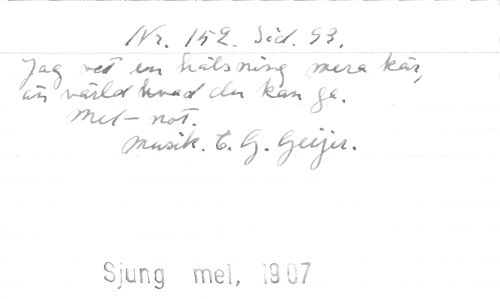 Nr. 152. Sid. 93.
Jag vet en hälsning mera kär,
än värld hvad du kan ge.
Mel-not.
Musik. E. G. Geijer.
Sjung mel, 1907